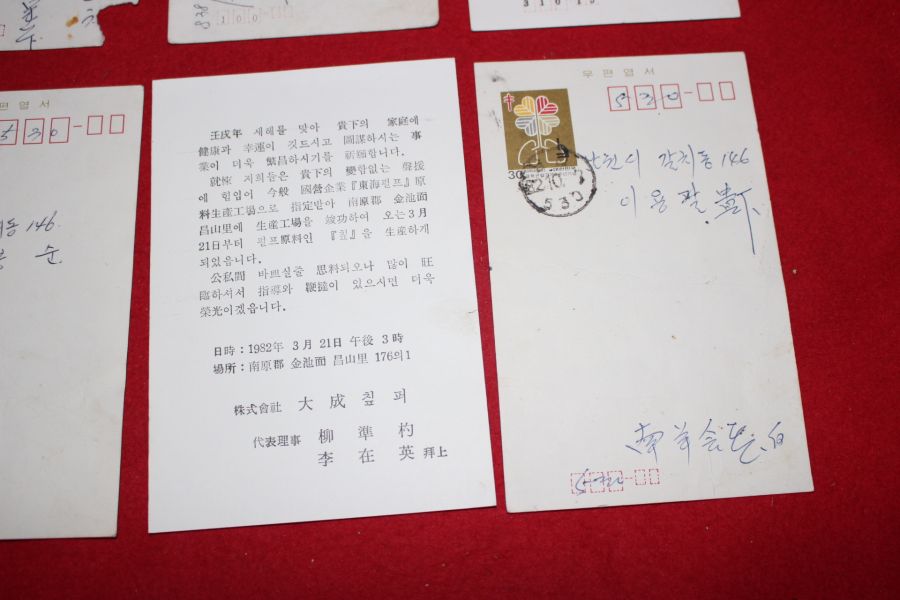 100
31013
편엽서
530
동 146
순
壬戌年 새해를 맞아 貴下의 家庭에
健康과 幸運이 깃드시고 圖謀하시는 事
業이 더욱 繁昌하시기를 祈願합니다.
就座 저희들은 貴下의 變함없는 聲援
에 힘입어 今般 國營企業『東海펄프』原
料生產工場으로 指定받아 南原郡 金池面
昌山里에 生産工場을 竣功하여 오는 3月
21日부터 펄프原料인 『칲』을 生産하게
되었읍니다.
公私間 바쁘실줄 思料되오나 많이 旺
臨하셔서 指導와 鞭撻이 있으시면 더욱
榮光이겠읍니다.
日時：1982年 3月 21日 午後 3時
場所：南原郡 金池面 昌山里 176의1
株式會社 大成칲퍼
代表理事 柳準杓
李在英 拜上
우편엽서
530
30
530
남원시 갈치동 146
이용팔 貴下